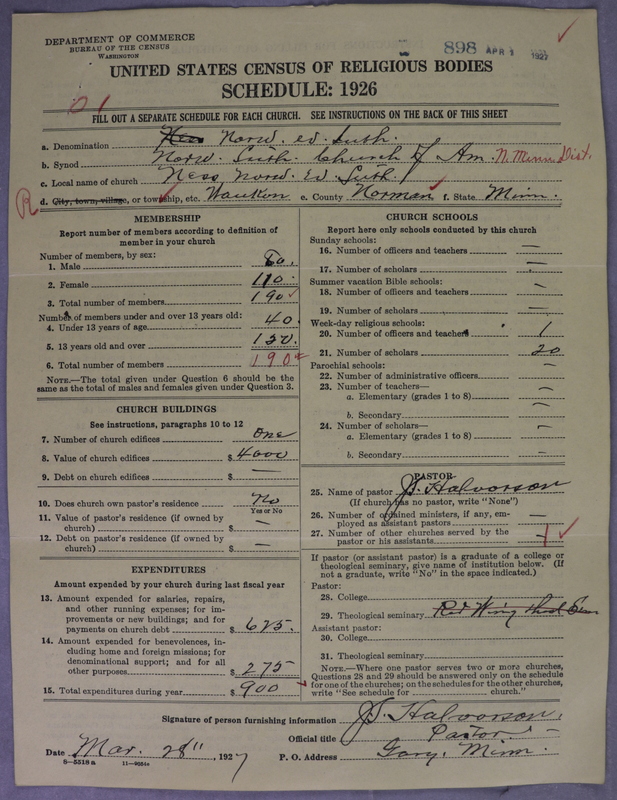 DEPARTMENT OF COMMERCE
BUREAU OF THE CENSUS
WASHINGTON
898 APR 1927
UNITED STATES CENSUS OF RELIGIOUS BODIES
SCHEDULE: 1926
01
FILL OUT A SEPARATE SCHEDULE FOR EACH CHURCH. SEE INSTRUCTIONS ON THE BACK OF THIS SHEET
a. Denomination Ness Norw. ev. Luth.
b. Synod Norw. Luth. Church of Am. N. Minn. Dist.
c. Local name of church Ness Norw. Ev. Luth.
R d. City, town, village, or township, etc. Waukon e. County Norman f. State Minn.
MEMBERSHIP
Report number of members according to definition of
member in your church
Number of members, by sex:
1. Male 80.
2. Female 110.
3. Total number of members 190
Number of members under and over 13 years old:
4. Under 13 years of age 40
5. 13 years old and over 150.
6. Total number of members 190
NOTE.—The total given under Question 6 should be the
same as the total of males and females given under Question 3.
CHURCH BUILDINGS
See instructions, paragraphs 10 to 12
7. Number of church edifices One
8. Value of church edifices $4000
9. Debt on church edifices $ —
10. Does church own pastor's residence? No
Yes or No
11. Value of pastor's residence (if owned by
church) $ —
12. Debt on pastor's residence (if owned by
church) $ —
EXPENDITURES
Amount expended by your church during last fiscal year
13. Amount expended for salaries, repairs,
and other running expenses; for im-
provements or new buildings; and for
payments on church debt $ 625.
14. Amount expended for benevolences, in-
cluding home and foreign missions; for
denominational support; and for all
other purposes $ 275
15. Total expenditures during year $ 900
CHURCH SCHOOLS
Report here only schools conducted by this church
Sunday schools:
16. Number of officers and teachers —
17. Number of scholars —
Summer vacation Bible schools:
18. Number of officers and teachers —
19. Number of scholars —
Week-day religious schools:
20. Number of officers and teachers 1
21. Number of scholars 20
Parochial schools:
22. Number of administrative officers —
23. Number of teachers—
a. Elementary (grades 1 to 8) —
b. Secondary —
24. Number of scholars—
a. Elementary (grades 1 to 8) —
b. Secondary —
PASTOR
25. Name of pastor J. Halvorson
(If church has no pastor, write "None")
26. Number of ordained ministers, if any, em-
ployed as assistant pastors —
27. Number of other churches served by the
pastor or his assistants
If pastor (or assistant pastor) is a graduate of a college or
theological seminary, give name of institution below. (If
not a graduate, write "No" in the space indicated.)
Pastor:
28. College
29. Theological seminary Red Wing Sem
Assistant pastor:
30. College
31. Theological seminary
NOTE.—Where one pastor serves two or more churches,
Questions 28 and 29 should be answered only on the schedule
for one of the churches; on the schedules for the other churches,
write "See schedule for church."
Signature of person furnishing information J. Halvorson.
Official title Pastor.
Date Mar. 28", 1927 P. O. Address Gary, Minn.
8—5518 a